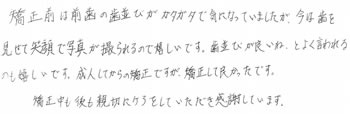 矯正前は前歯の歯並びがガタガタで気になっていましたが、今は歯を
見せて笑顔で写真が撮られるので嬉しいです。歯並びが良いね、とよく言われる
のも嬉しいです。成人してからの矯正ですが、矯正して良かったです。
矯正中も後も親切にケアをしていただき感謝しています。